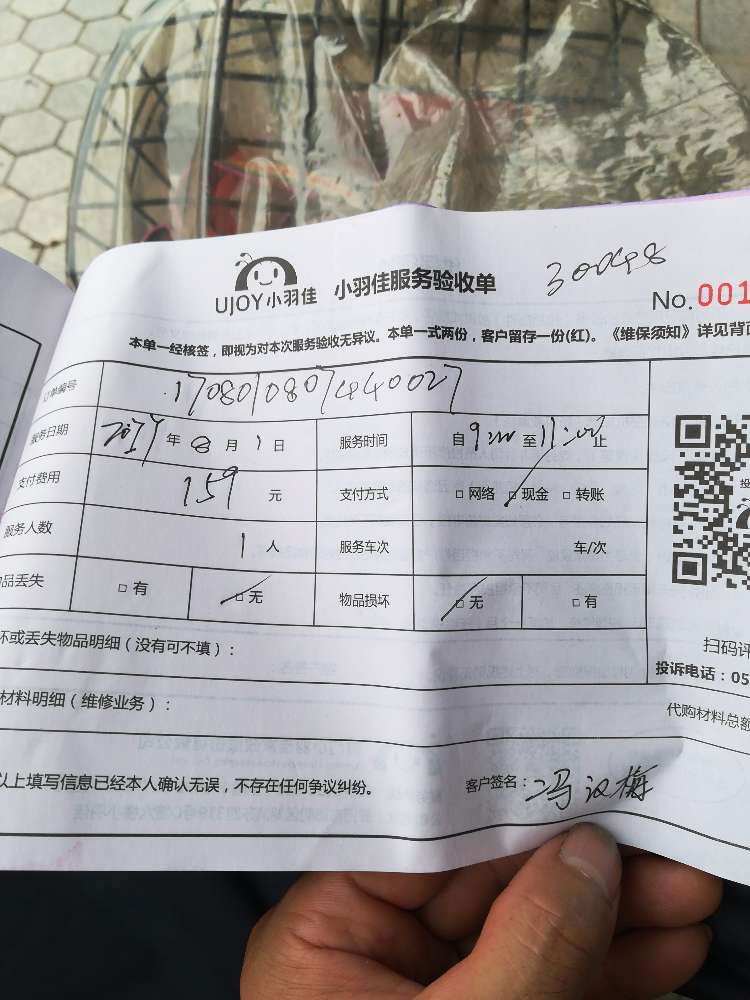 UJOY小羽佳 小羽佳服务验收单 30048
No.001
本单一经核签，即视为对本次服务验收无异议。本单一式两份，客户留存一份(红)。《维保须知》详见背面
订单编号 1708010807440027
服务日期 2017年 8月 1日 服务时间 自9:00至11:00止
支付费用 159元 支付方式 □网络 □现金 □转账
服务人数 1人 服务车次 车/次
物品丢失 □有 □无 物品损坏 □无 □有
坏或丢失物品明细（没有可不填）：
扫码评
投诉电话：05
材料明细（维修业务）：
代购材料总额
以上填写信息已经本人确认无误，不存在任何争议纠纷。
客户签名：冯汉梅